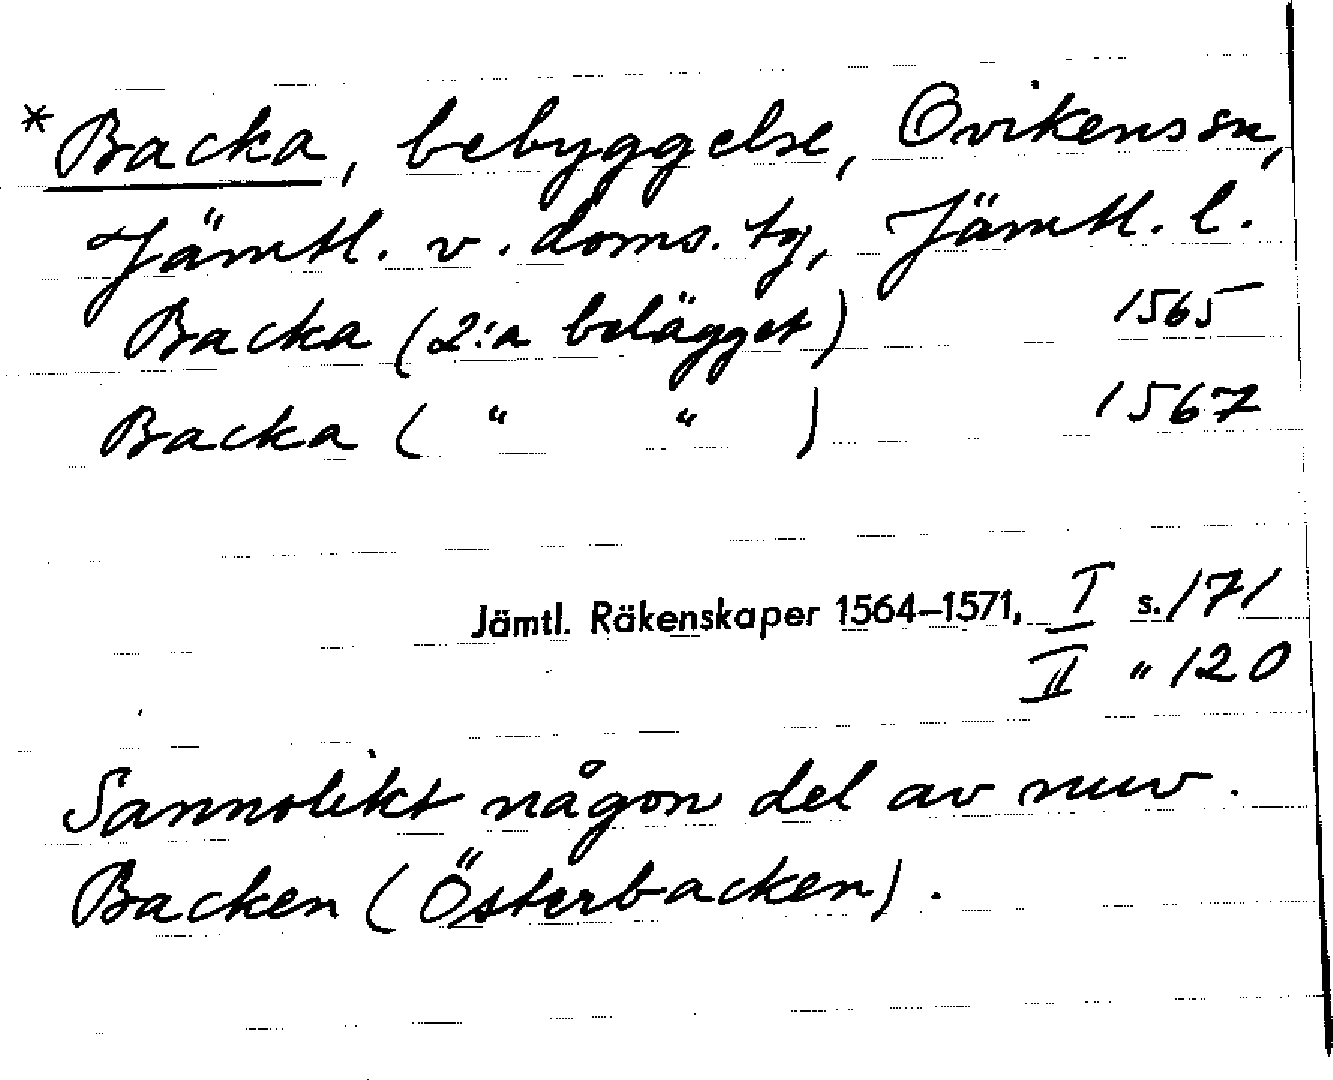 * Backa, bebyggelse, Ovikens sn,
Jämtl. v. doms. tg, Jämtl. l.
Backa (2:a belägget) 1565
Backa ( " " ) 1567
Jämtl. Räkenskaper 1564–1571, I s. 171
II " 120
Sannolikt någon del av nuv.
Backen (Österbacken).